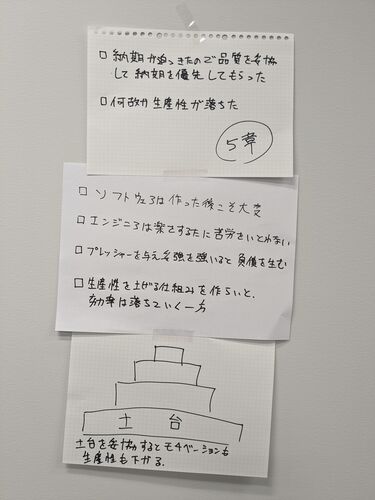 □ 納期が迫ってきたので品質を妥協
して納期を優先してもらった
□ 何故か生産性が落ちた
5章
□ ソフトウェアは作った後こそ大変
□ エンジニアは楽をするために苦労をいとわない
□ プレッシャーを与え勉強を強いると負債を生む
□ 生産性を上げる仕組みを作らないと、
効率は落ちていく一方
土台
土台を妥協するとモチベーションも
生産性も下がる。